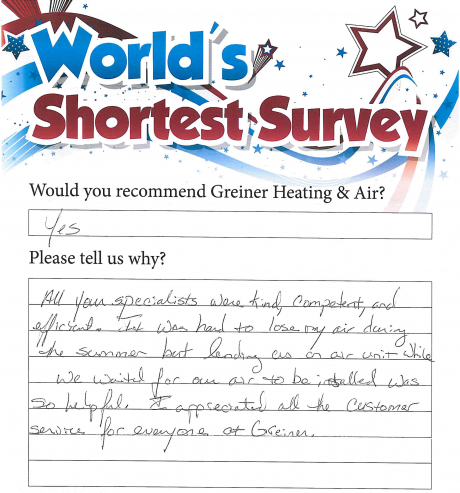 World's
Shortest Survey
Would you recommend Greiner Heating & Air?
Yes
Please tell us why?
All your specialists were kind, competent, and
efficient. It was hard to lose my air during
the summer but lending us an air unit while
we waited for our air to be installed was
so helpful. I appreciated all the customer
service for everyone at Greiner.